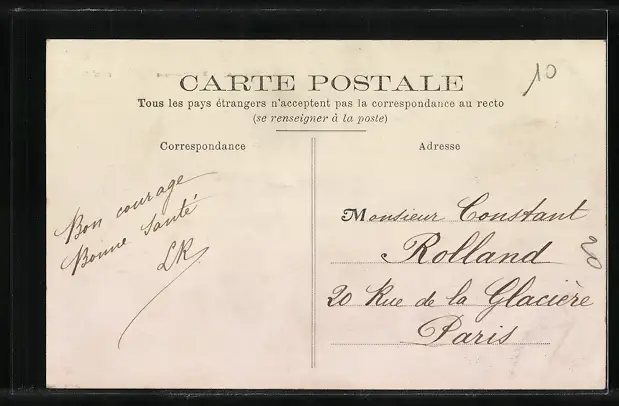 CARTE POSTALE
Tous les pays étrangers n'acceptent pas la correspondance au recto
(se renseigner à la poste)
Correspondance
Adresse
Bon courage
Bonne Santé
LR
Monsieur Constant
Rolland
20 Rue de la Glacière
Paris
10
20